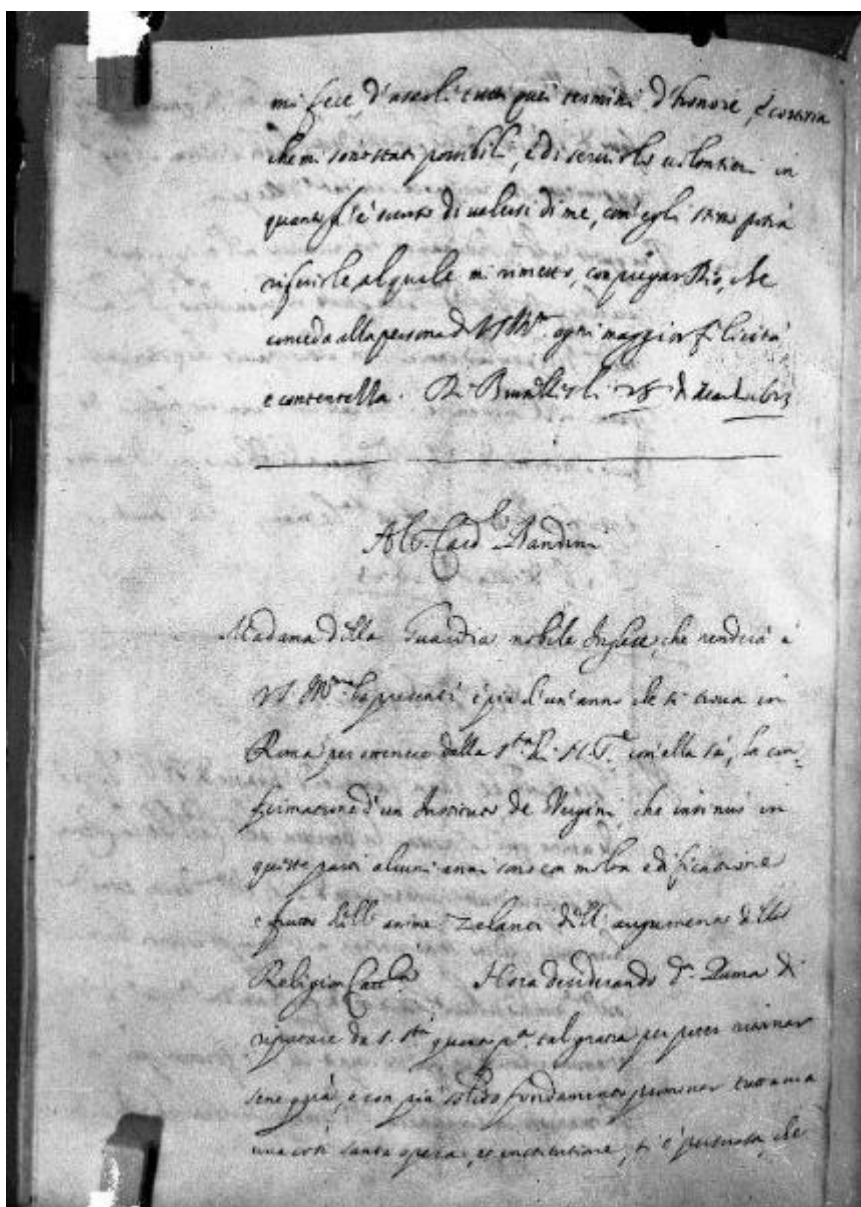 mi fece d'usarli tutti quei termini d'honore, e cortesia
che mi sono stati possibili, e di servirlo volontieri in
quanto s'è di valersi di me, com'egli potrà
riferirle, al quale mi rimetto, con pregar Dio, che
conceda alla persona di V.S. Ill.ma ogni maggior felicità
e contentezza. Di Brusselles li 28 di 1623
Al S. Card.l Bandini
Madama della Guardia nobile Inglese, che renderà à
V.S. Ill.ma la presente è più d'un'anno che si trova in
Roma per ottenere dalla S.tà di N.S.re com'ella sà, la con-
firmatione d'un Instituto de Vergini, che in
queste parti alcuni anni sono con molta edificatione
e frutto dell'anime zelanti dell'augumento della
Religion Catt.ca Hora desiderando d.a Dama di
riportare da S. S.tà questa tal gratia per poter ritornar
sene quà, e con più solido fondamento promover tuttavia
una così santa opera, et institutione, si è persuasa, che